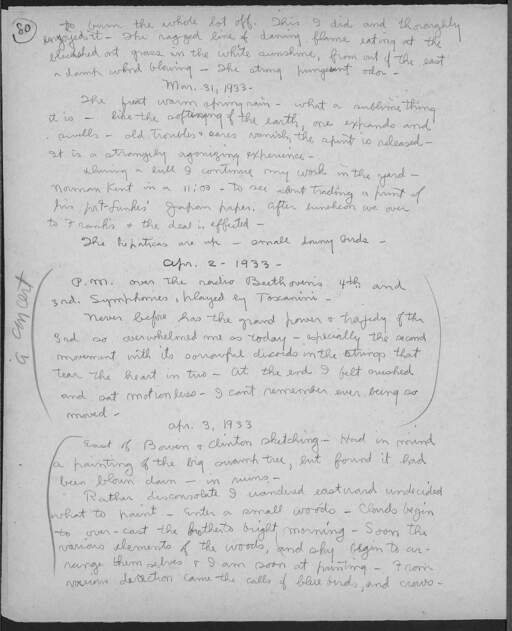 80
to burn the whole lot off. This I did and thoroughly
enjoyed it - The ragged line of daring flame eating at the
bleached out grass in the white sunshine, from out of the east
a damp wind blowing - The strong pungent odor -
Mar. 31, 1933 -
The first warm spring rain - what a sublime thing
it is - like the softening of the earth, one expands and
swells - old troubles & cares vanish, the spirit is released -
It is a strangely agonizing experience -
During a lull I continue my work in the yard -
Norman Kent in a 11:00 - To see about trading a print of
his for Japan paper. After luncheon we over
to Frank's & the deal is effected -
The hepaticas are up - small downy buds -
Apr. 2 - 1933 -
P.M. over the radio Beethoven's 4th and
3rd. Symphonies, played by Toscanini -
Never before has the grand power & tragedy of the
3rd so overwhelmed me as today - especially the second
movement with its sorrowful discords in the strings that
tear the heart in two - At the end I felt crushed
and sat motionless - I can't remember ever being so
moved -
a concert
apr. 3, 1933
East of Bowen & Clinton sketching - Had in mind
a painting of the big swamp tree, but found it had
been blown down - in ruins -
Rather disconsolate I wandered eastward undecided
what to paint - Enter a small woods - Clouds begin
to over-cast the hitherto bright morning - Soon the
various elements of the woods, and sky begin to ar-
range themselves & I am soon at painting - From
various direction came the calls of bluebirds, and crows -